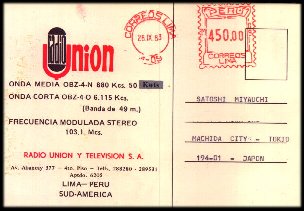 radio
Union
ONDA MEDIA OBZ-4-N 880 Kcs. 50 Kwts
ONDA CORTA OBZ-4 O 6.115 Kcs.
(Banda de 49 m.)
FRECUENCIA MODULADA STEREO
103.1. Mcs.
RADIO UNION Y TELEVISION S. A.
Telfs.
Apdo. 6205
LIMA—PERU
SUD-AMERICA
CORREOS LIMA
PERU
450.00
CORREOS
LIMA
SATOSHI MIYAUCHI
MACHIDA CITY - TOKIO
194-01 - JAPON